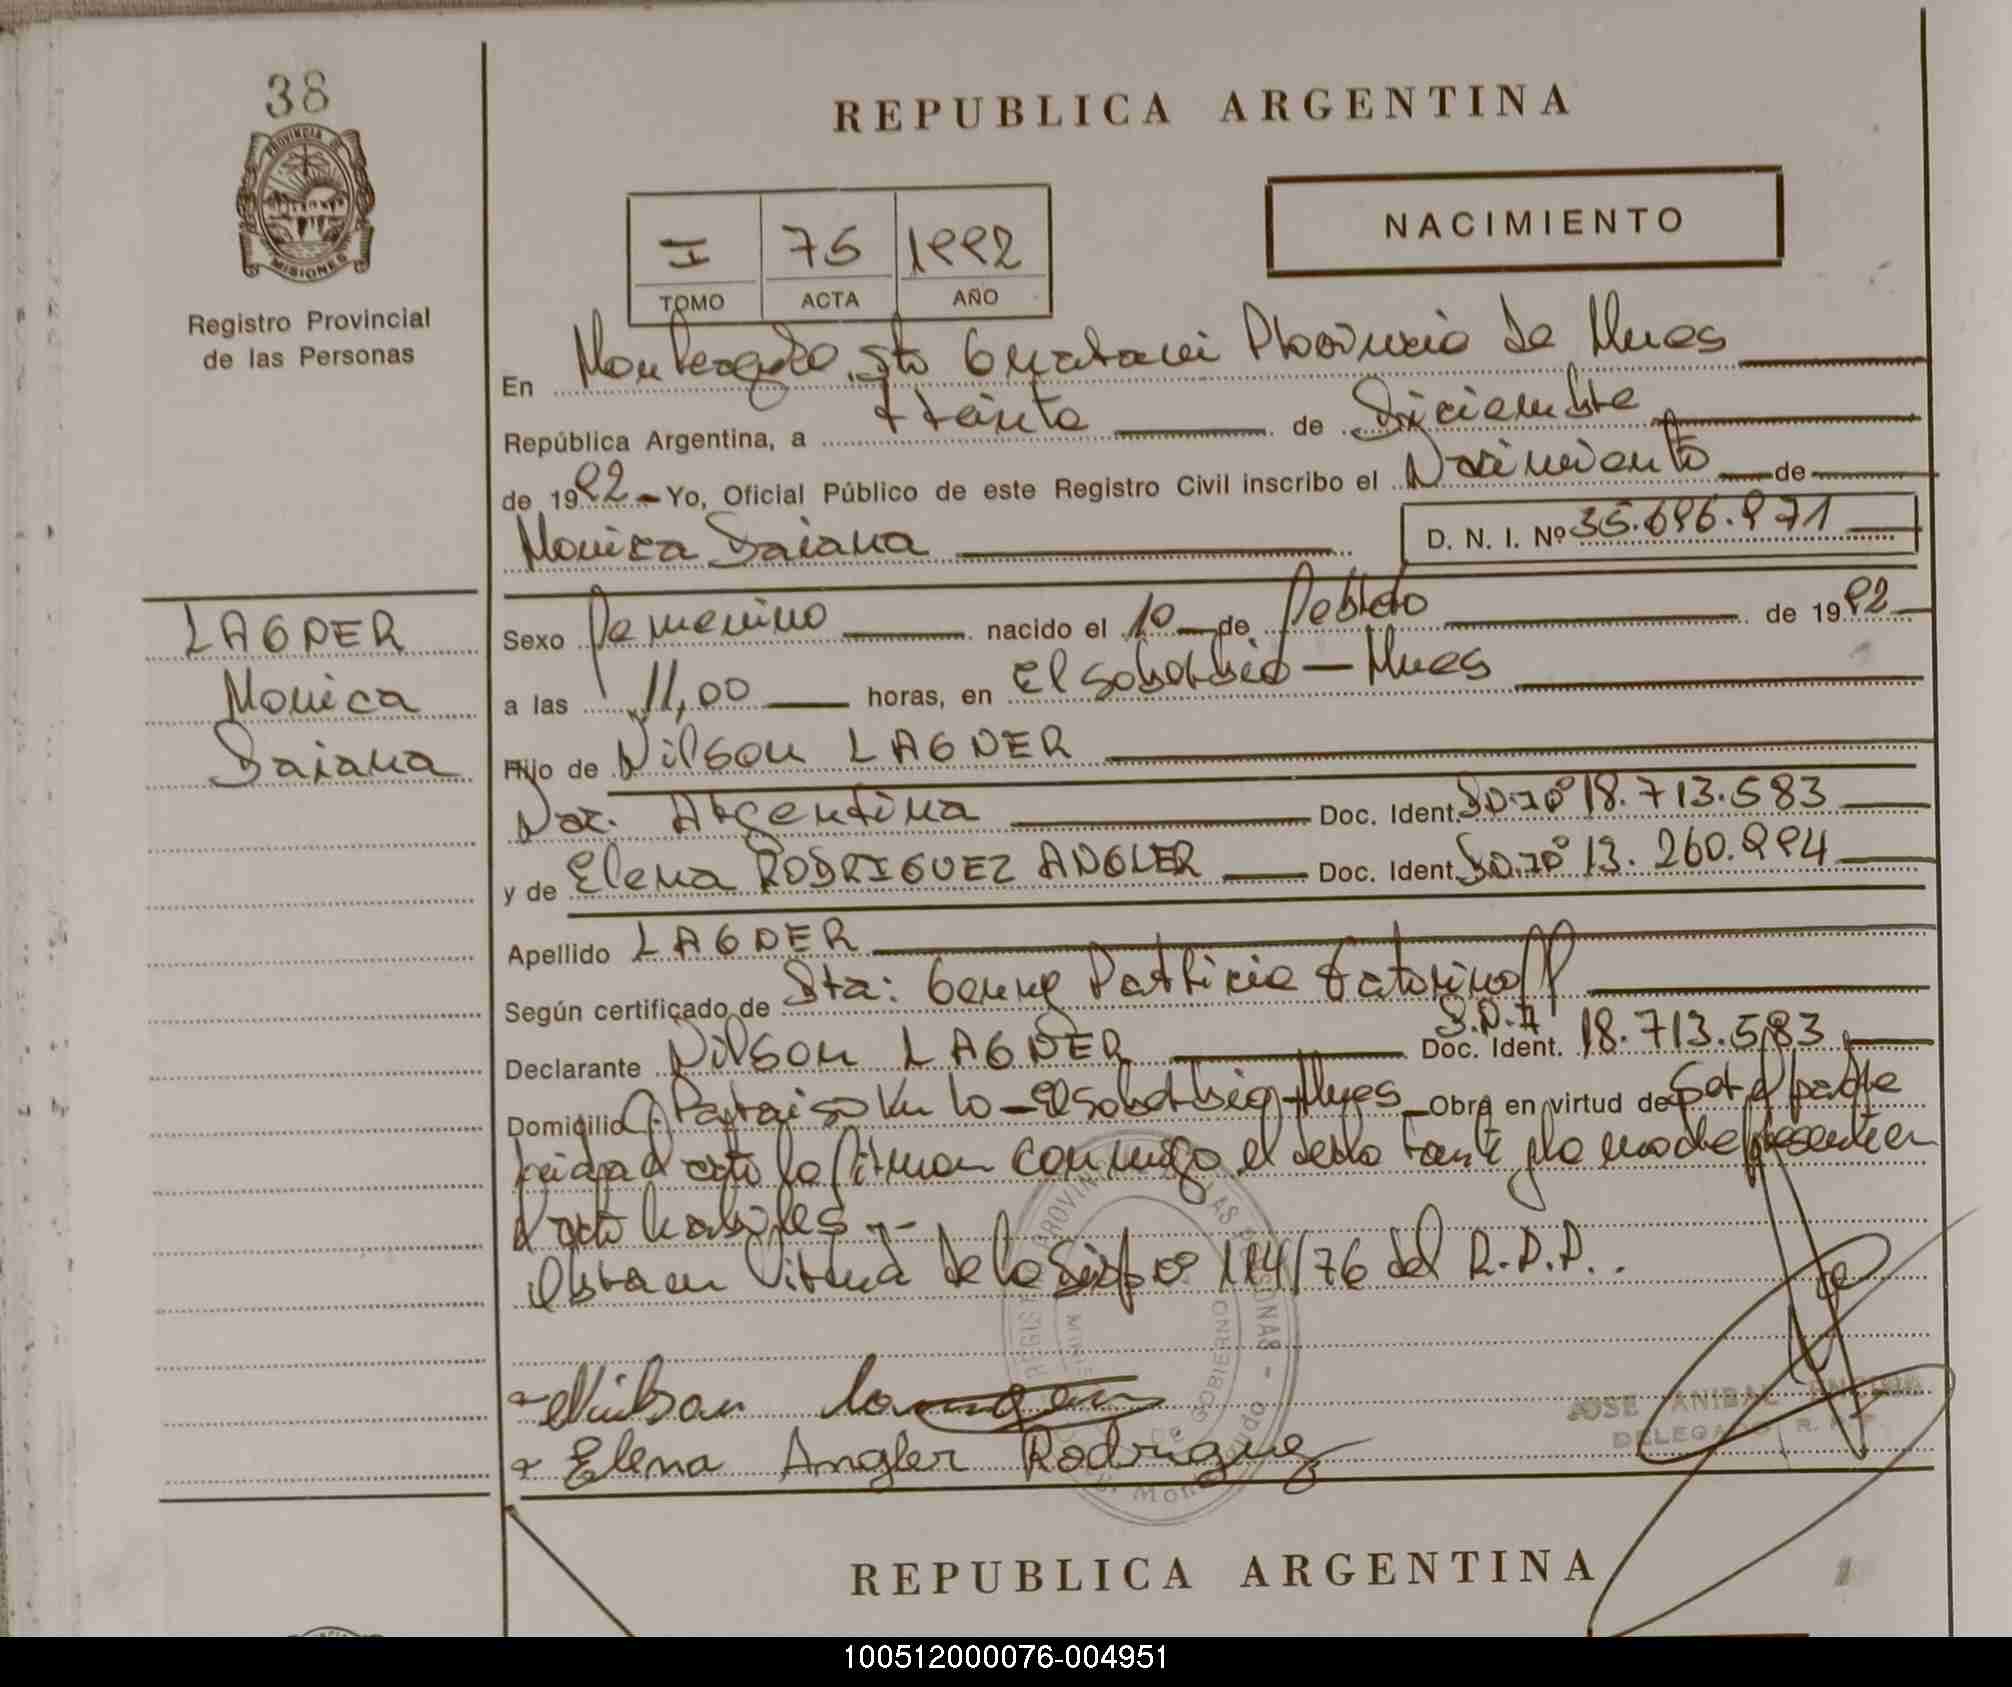 38
PROVINCIA DE
MISIONES
Registro Provincial
de las Personas
REPUBLICA ARGENTINA
I 75 1992
TOMO ACTA AÑO
NACIMIENTO
En Monteagudo Dto Guarani Provincia de Mnes
República Argentina, a treinta de Diciembre
de 1992 - Yo, Oficial Público de este Registro Civil inscribo el Nacimiento de
Monica Daiana
D. N. I. Nº 35.696.971
LAGNER
Monica
Daiana
Sexo Femenino nacido el 10 de Febrero de 1992
a las 11,00 horas, en El Soberbio - Mnes
Hijo de Nilson LAGNER
Nac. Argentina Doc. Ident. D.N.I Nº 18.713.583
y de Elena RODRIGUEZ ANGLER Doc. Ident. D.N.I Nº 13.260.994
Apellido LAGNER
Según certificado de Sta: Genny Patricia Tatarinoff
Declarante Nilson LAGNER Doc. Ident. D.N.I 18.713.583
Domicilio Paraiso Km 10 - El Soberbio - Mnes Obra en virtud de ser el padre
leida el acta la firman conmigo el declarante y la madre presente en
el acto
Obra en Virtud de la Disp nº 114/76 del R.P.P..
Nilson
Elena Angler Rodriguez
REGISTRO PROVINCIAL DE LAS PERSONAS
DE GOBIERNO
JOSE ANIBAL
DELEGADO R. P. P.
REPUBLICA ARGENTINA
100512000076-004951